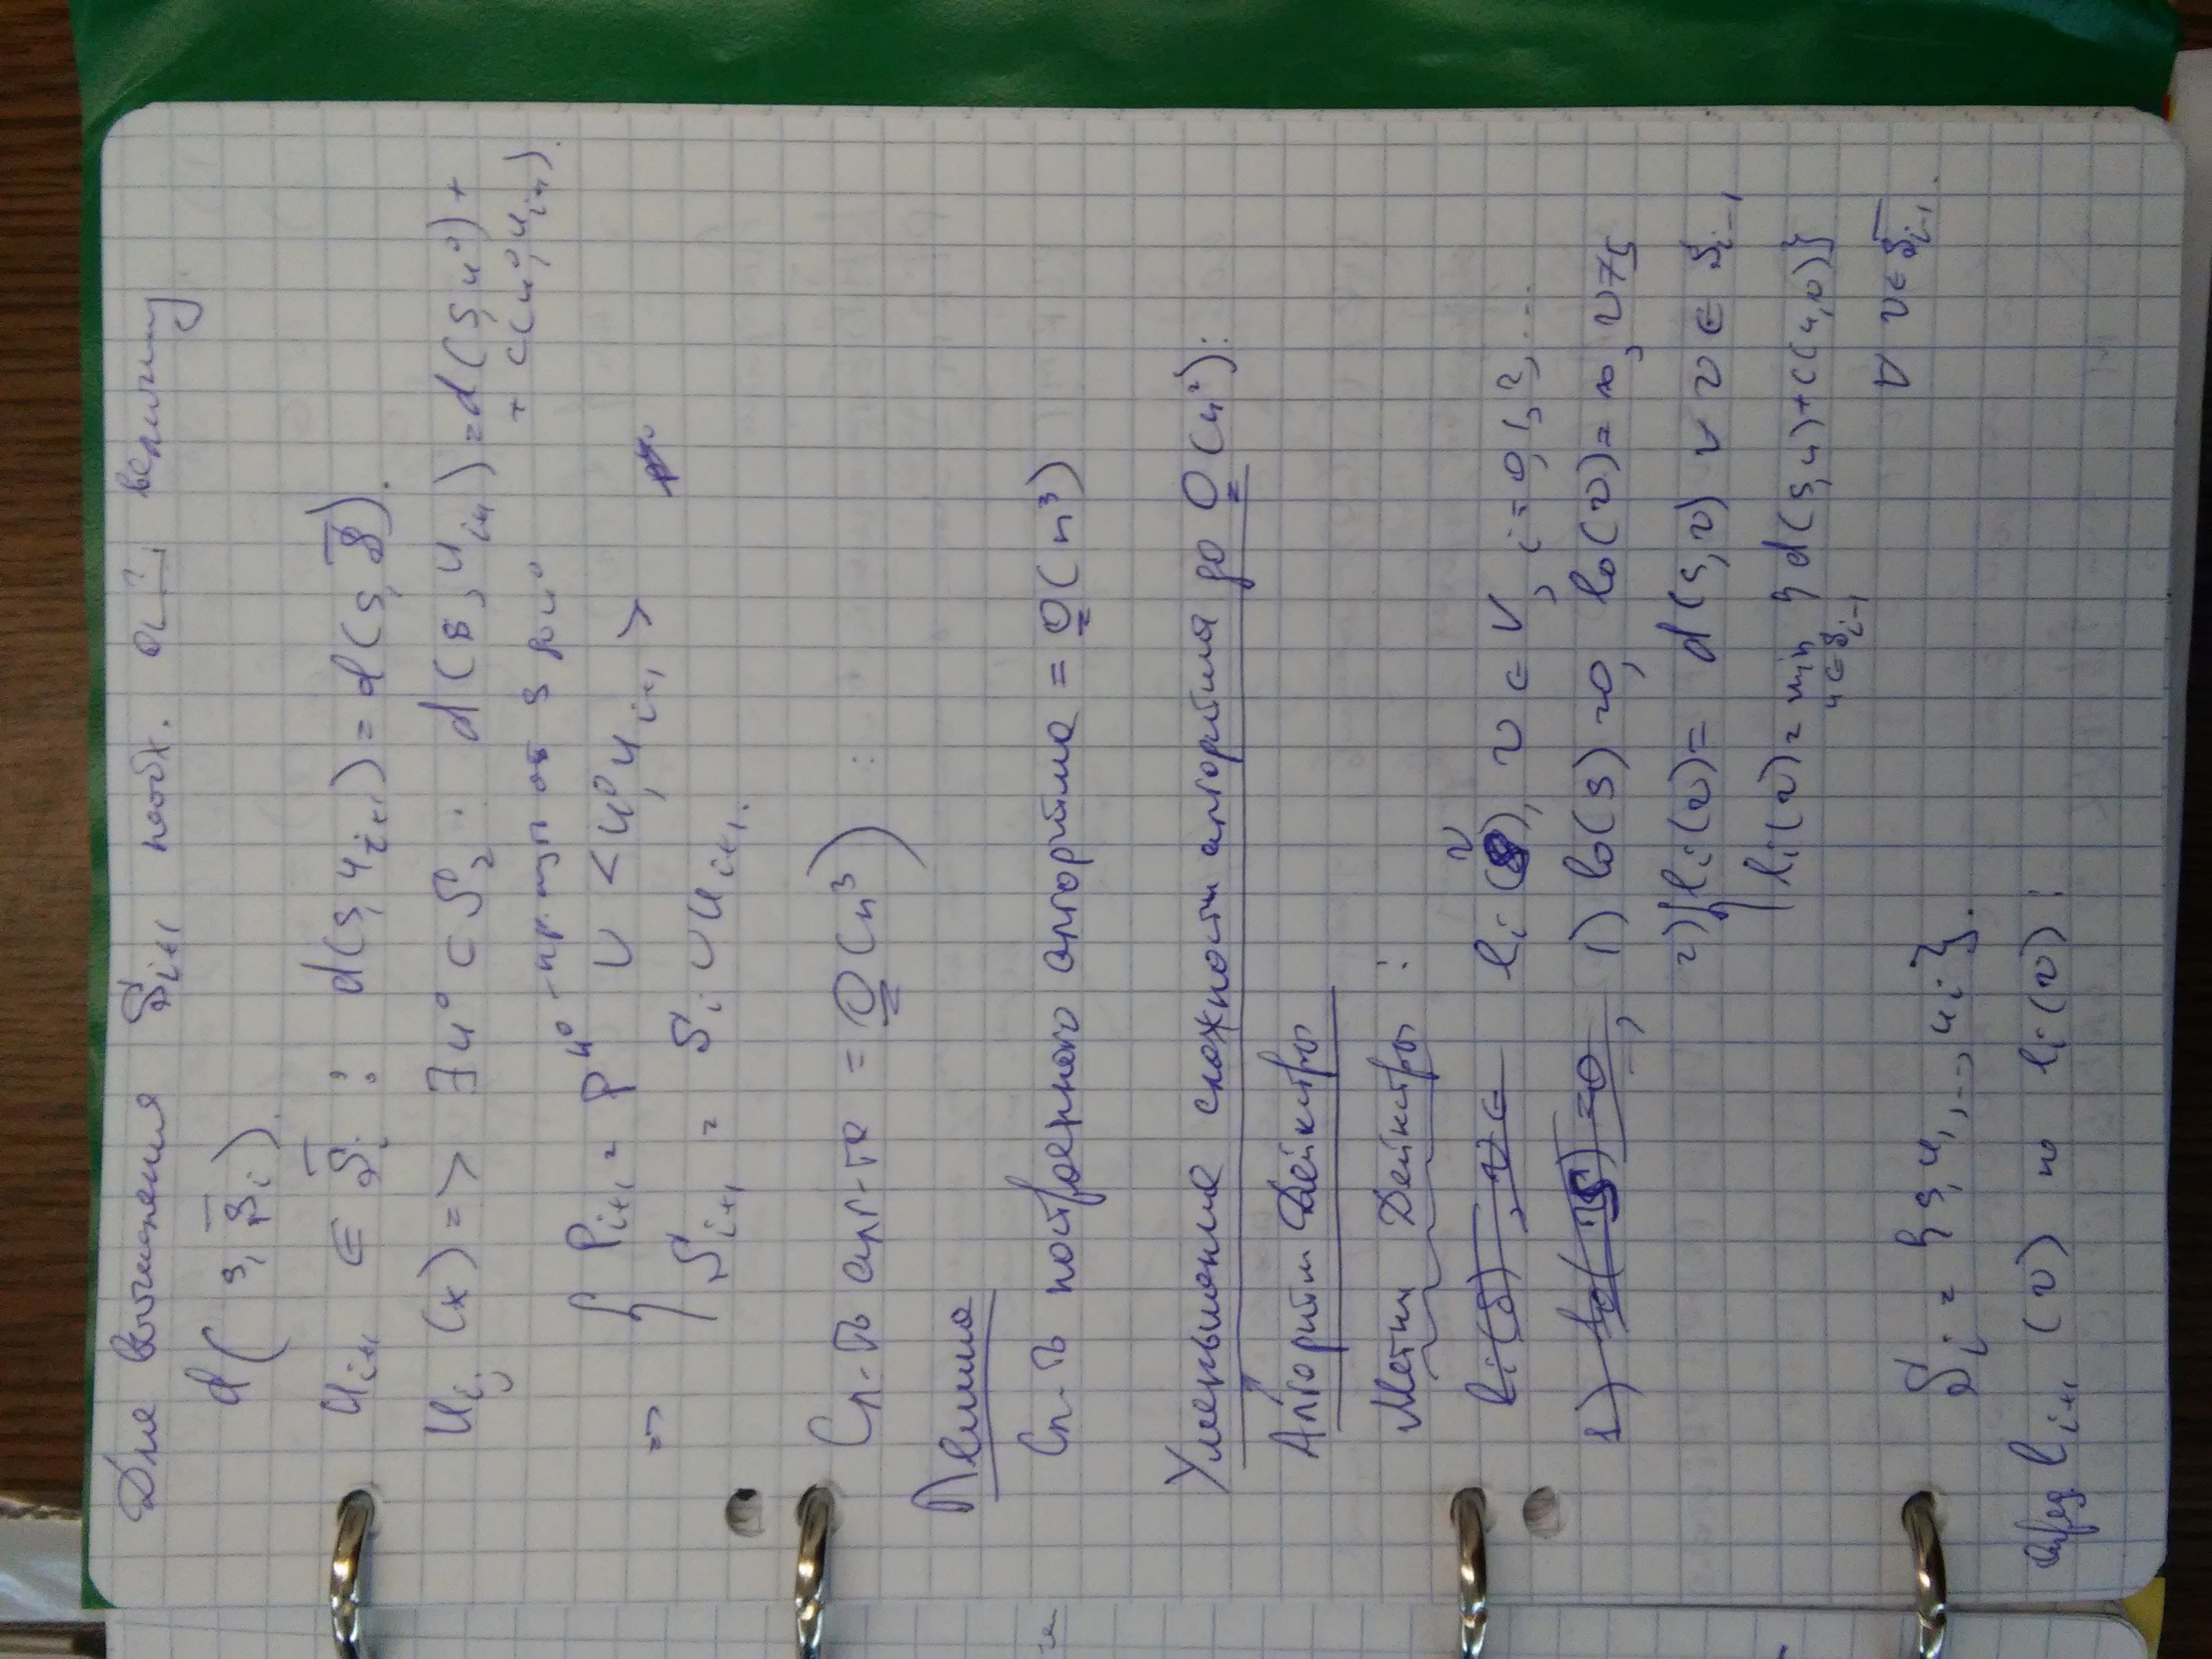 Для вычисления S_{i+1} необх. величину
d(s, S̅_i).
u_{i+1} ∈ S̅_i : d(s, u_{i+1}) = d(s, S̅).
u_i (x) => ∃ u⁰ ⊂ S_2 : d(s, u_{i+1}) = d(s, u⁰) +
+ c(u⁰, u_{i+1}).
- кр. путь от s до u⁰
=> { P_{i+1} = P^{u⁰} ∪ <u⁰, u_{i+1}>
S_{i+1} = S_i ∪ u_{i+1}.
Сл-ть алг-та = O(n³) :
Лемма
Сл-ть построенного алгоритма = O(n³)
Уменьшение сложности алгоритма до O(n²):
Алгоритм Дейкстры
Метки Дейкстры :
l_i(s), v ∈ l_i(v), v ∈ V, i = 0, 1, 2, ...
1) l_0(s) = 0, 1) l_0(s) = 0, l_0(v) = ∞, v ≠ s
2) { l_i(v) = d(s, v) ∀ v ∈ S_{i-1}
l_i(v) = min_{u ∈ S_{i-1}} { d(s, u) + c(u, v) }
∀ v ∈ S̅_{i-1}.
S_i = { s, u_1, ..., u_i }.
опред. l_{i+1}(v) по l_i(v) :